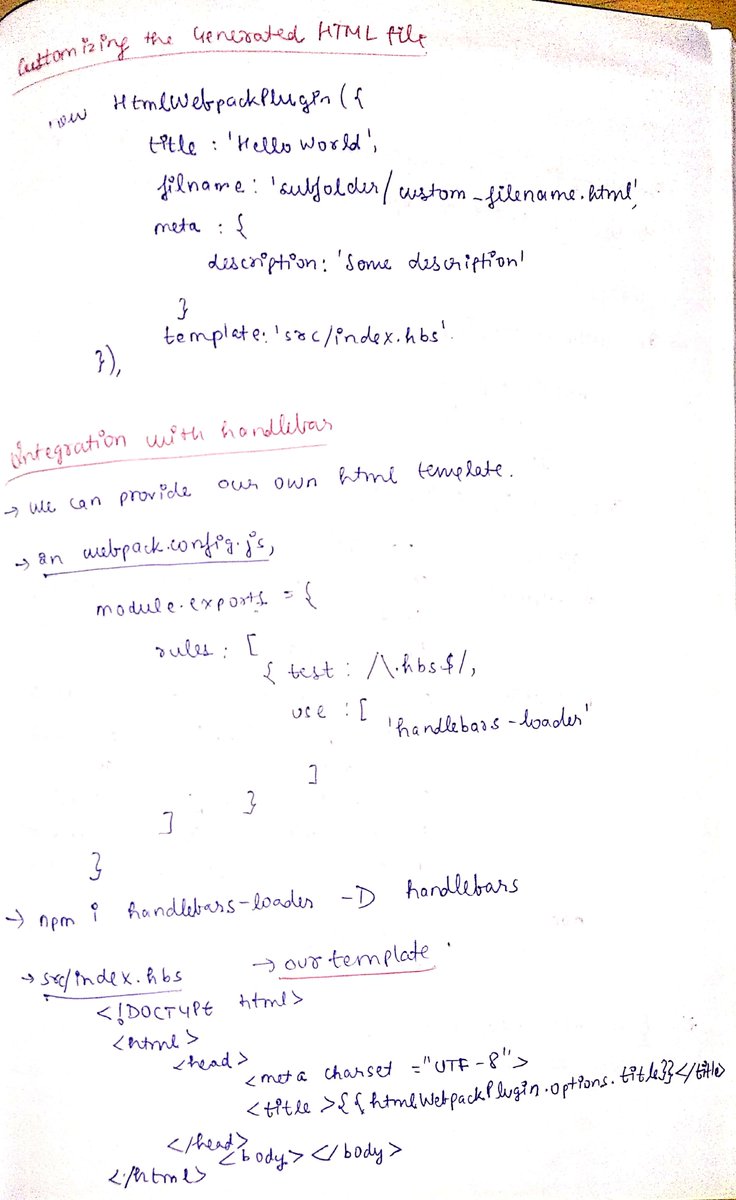 Customizing the Generated HTML file
new HtmlWebpackPlugin ({
title : 'Hello World',
filname : 'subfolder/custom-filename.html',
meta : {
description: 'Some description'
}
template: 'src/index.hbs'
}),
Integration with handlebar
→ We can provide our own html template.
→ In webpack.config.js,
module.exports = {
rules : [
{ test : /\.hbs$/,
use : [ 'handlebars-loader'
]
}
]
}
→ npm i handlebars-loader -D handlebars
→ src/index.hbs → our template
<!DOCTYPE html>
<html>
<head>
<meta charset ="UTF-8">
<title >{{htmlWebpackPlugin.options.title}}</title>
</head>
<body></body>
</html>